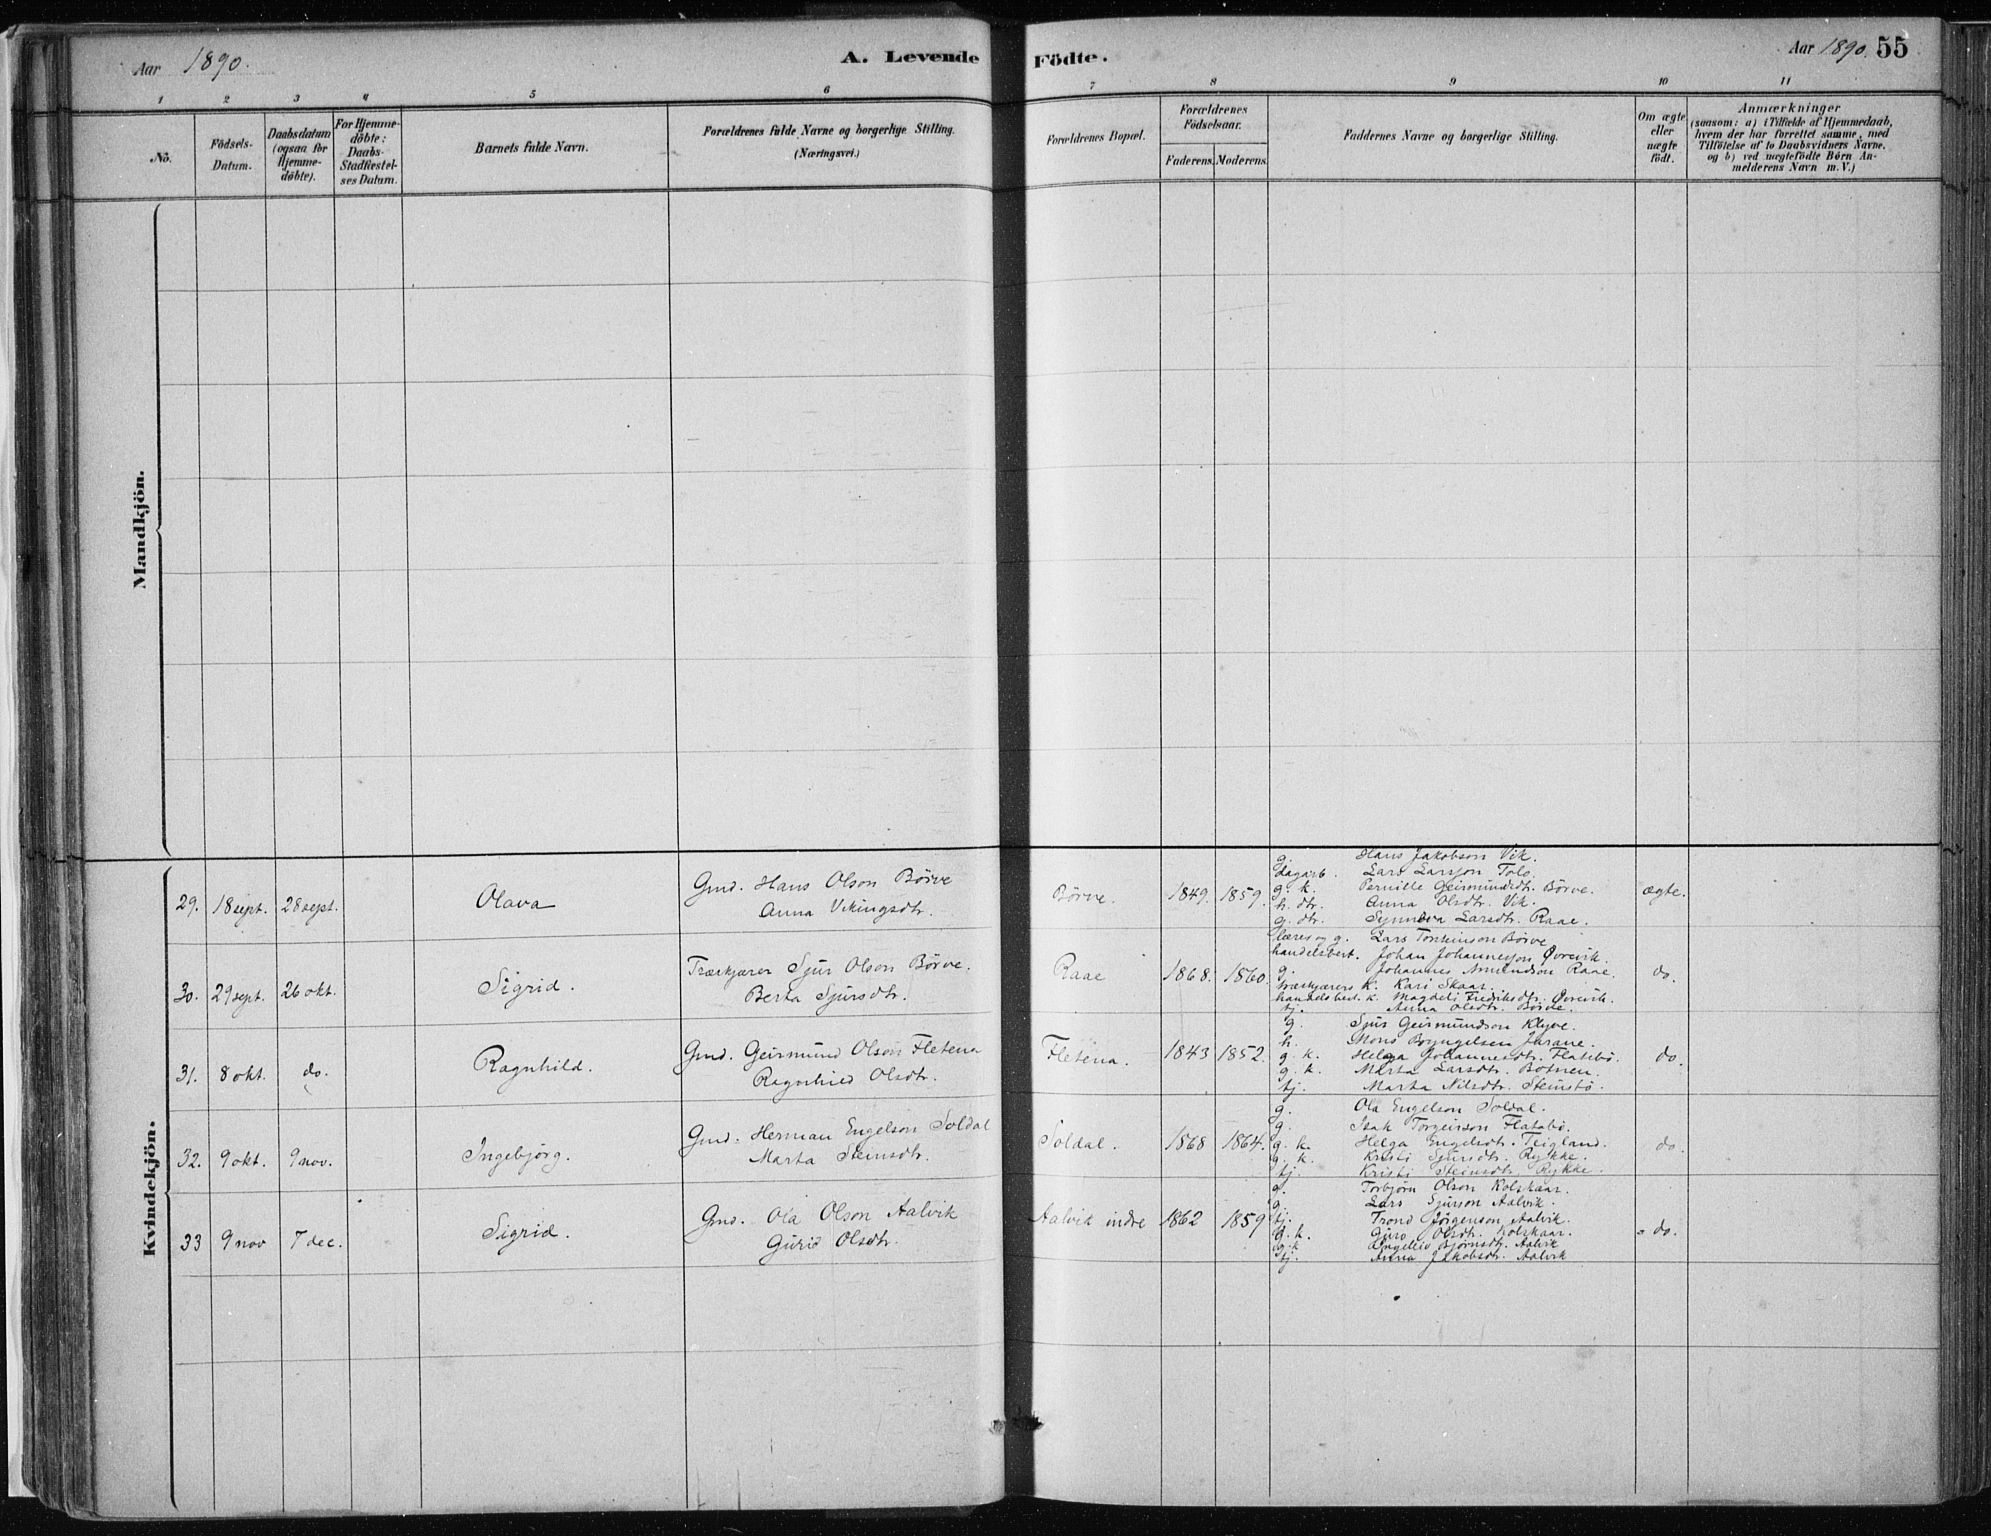 Aar 1890.
A. Levende
Födte.
Aar 1890. 55
1 2 3 4 5 6 7 8 9 10 11
No.
Födsels-
Datum.
Daabsdatum
(ogsaa for
Hjemme-
döbte).
For Hjemme-
döbte:
Daabs-
Stadfæstel-
ses Datum.
Barnets fulde Navn.
Forældrenes fulde Navne og borgerlige Stilling.
(Næringsvei.)
Forældrenes Bopæl.
Forældrenes
Födselsaar.
Faderens. Moderens.
Faddernes Navne og borgerlige Stilling.
Om ægte
eller
uægte
født.
Anmærkninger
(saasom: a) i Tilfælde af Hjemmedaab,
hvem der har forrettet samme, med
Tilföielse af to Daabsvidners Navne,
og b) ved uægtefödte Börn An-
melderens Navn m. V.)
Mandkjön.
Kvindekjön.
29. 18 sept. 28 sept. Olava
Gmd. Hans Olson Börve
Anna Vikingsdtr.
Börve. 1849. 1859.
g. Hans Jakobson Vik.
dagarb. Lars Larsson Tolo.
g. k. Pernille Geirmundsdt. Börve.
h. dtr. Anna Olsdt. Vik.
g. dtr. Synneva Larsdt. Raae.
ægte.
30. 29 sept. 26 okt. Sigrid.
Træskjærer Sjur Olson Börve.
Berta Sjursdtr.
Raae 1868. 1860.
lærer og g. Lars Torkinson Börve
handelsbest. Johan Johannesson Øvrevik.
g. Johannes Amundson Raae.
træskjærers k. Kari Skaar.
handelsbest. k. Magdeli Fredriksdtr. Øvrevik.
tj. Anna Olsdt. Börve.
do.
31. 8 okt. do. Ragnhild.
Gmd. Geirmund Olson Fletena
Ragnhild Olsdtr.
Fletena. 1843 1852.
g. Sjur Geirmundson Klyve.
h. Mons Brynjelsen Jarane.
g. k. Helga Johannesdtr. Flatebö.
g. k. Marta Larsdtr. Botnen.
tj. Marta Nilsdtr. Steinstö.
do.
32. 9 okt. 9 nov. Ingebjörg.
Gmd. Herman Engelson Soldal
Marta Steinsdtr.
Soldal. 1868 1864.
g. Ola Engelson Soldal.
g. Isak Torgeirson Flatebö.
g. k. Helga Engelsdt. Teigland.
g. k. Kristi Sjursdt. Rykke.
tj. Kristi Steinsdt. Rykke.
do.
33 9 nov 7 dec. Sigrid.
Gmd. Ola Olson Aalvik
Gurid Olsdtr.
Aalvik indre 1862 1859
g. Torbjörn Olson Kolskaar.
g. Lars Sjurson Aalvik.
tj. Trond Jörgenson Aalvik.
g. k. Guro Olsdt. Kolskaar.
g. k Bjørnsdt. Aalvik
tj. Anna Jakobsdt. Aalvik
do.